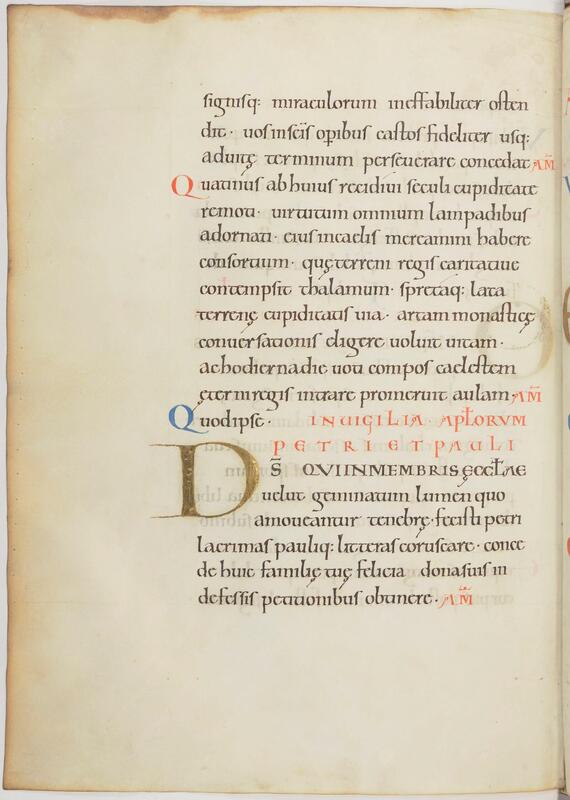 signisq: miraculorum ineffabiliter osten
dit · uos insc̄is op̄ibus castos fideliter usq:
ad uitę terminum perseuerare concedat · AM̄
Quatinus ab huius recidiui seculi cupiditate
remoti · uirtutum omnium lampadibus
adornati · eius in caelis mereamini habere
consortium · quę terreni regis caritatiue
contempsit thalamum · spretaq: lata
terrenę cupiditatis uia · artam monasticę
conuersationis eligere uoluit uitam ·
ac hodierna die uoti compos caelestem
ęterni regis intrare promeruit aulam · AM̄
Quod ipse · IN UIGILIA APL̄ORVM
PETRI ET PAULI
DS̄ QVI IN MEMBRIS ĘCCL̄AE
uelut geminatum lumen quo
amoueantur tenebrę · fecisti petri
lacrimas pauliq: litteras coruscare · conce
de huic familię tuę felicia dona suis in
defessis petitionibus obtinere · AM̄